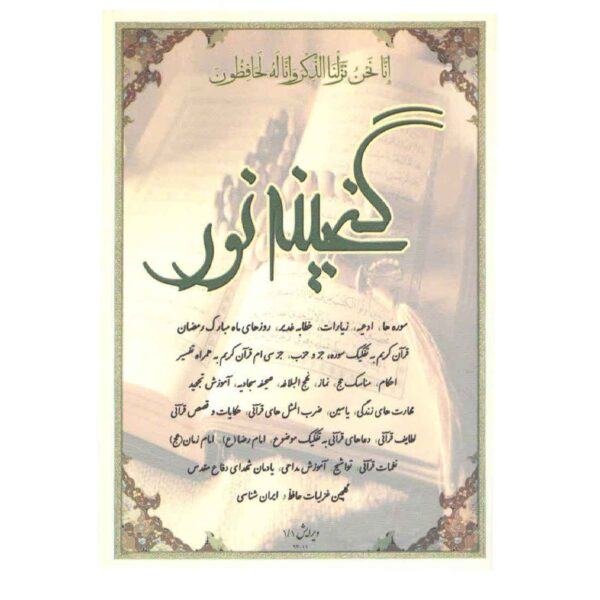 إنا نحن نزلنا الذكر وإنا له لحافظون
گنجینه نور
سوره ها، ادعیه، زیارات، خطابه غدیر، روزهای ماه مبارک رمضان
قرآن کریم به تفکیک سوره، جز و حزب، جز سی ام قرآن کریم به همراه تفسیر
احکام، مناسک حج، نماز، نهج البلاغه، صحیفه سجادیه، آموزش تجوید
مهارت های زندگی، یاسین، ضرب المثل های قرآنی، حکایات و قصص قرآنی
لطایف قرآنی، دعاهای قرآنی به تفکیک موضوع، امام رضا (ع)، امام زمان (عج)
نغمات قرآنی، تواشیح، آموزش مداحی، یادمان شهدای دفاع مقدس
گلچین غزلیات حافظ و ایران شناسی
ویرایش ۱/۱